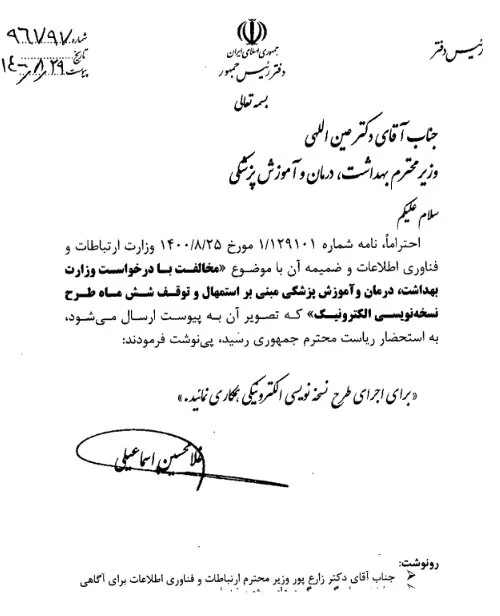 رئیس دفتر
جمهوری اسلامی ایران
دفتر رئیس جمهور
شماره ۹۶۷۹۷
تاریخ ۱۴۰۰/۸/۲۹
پیوست
بسمه تعالی
جناب آقای دکتر عین اللهی
وزیر محترم بهداشت، درمان و آموزش پزشکی
سلام علیکم
احتراماً، نامه شماره ۱/۱۲۹۱۰۱ مورخ ۱۴۰۰/۸/۲۵ وزارت ارتباطات و
فناوری اطلاعات و ضمیمه آن با موضوع «مخالفت با درخواست وزارت
بهداشت، درمان و آموزش پزشکی مبنی بر استمهال و توقف شش ماه طرح
نسخه‌نویسی الکترونیک» که تصویر آن به پیوست ارسال می‌شود،
به استحضار ریاست محترم جمهوری رسید، پی‌نوشت فرمودند:
«برای اجرای طرح نسخه نویسی الکترونیکی همکاری نمائید.»
غلامحسین اسماعیلی
رونوشت:
جناب آقای دکتر زارع پور وزیر محترم ارتباطات و فناوری اطلاعات برای آگاهی